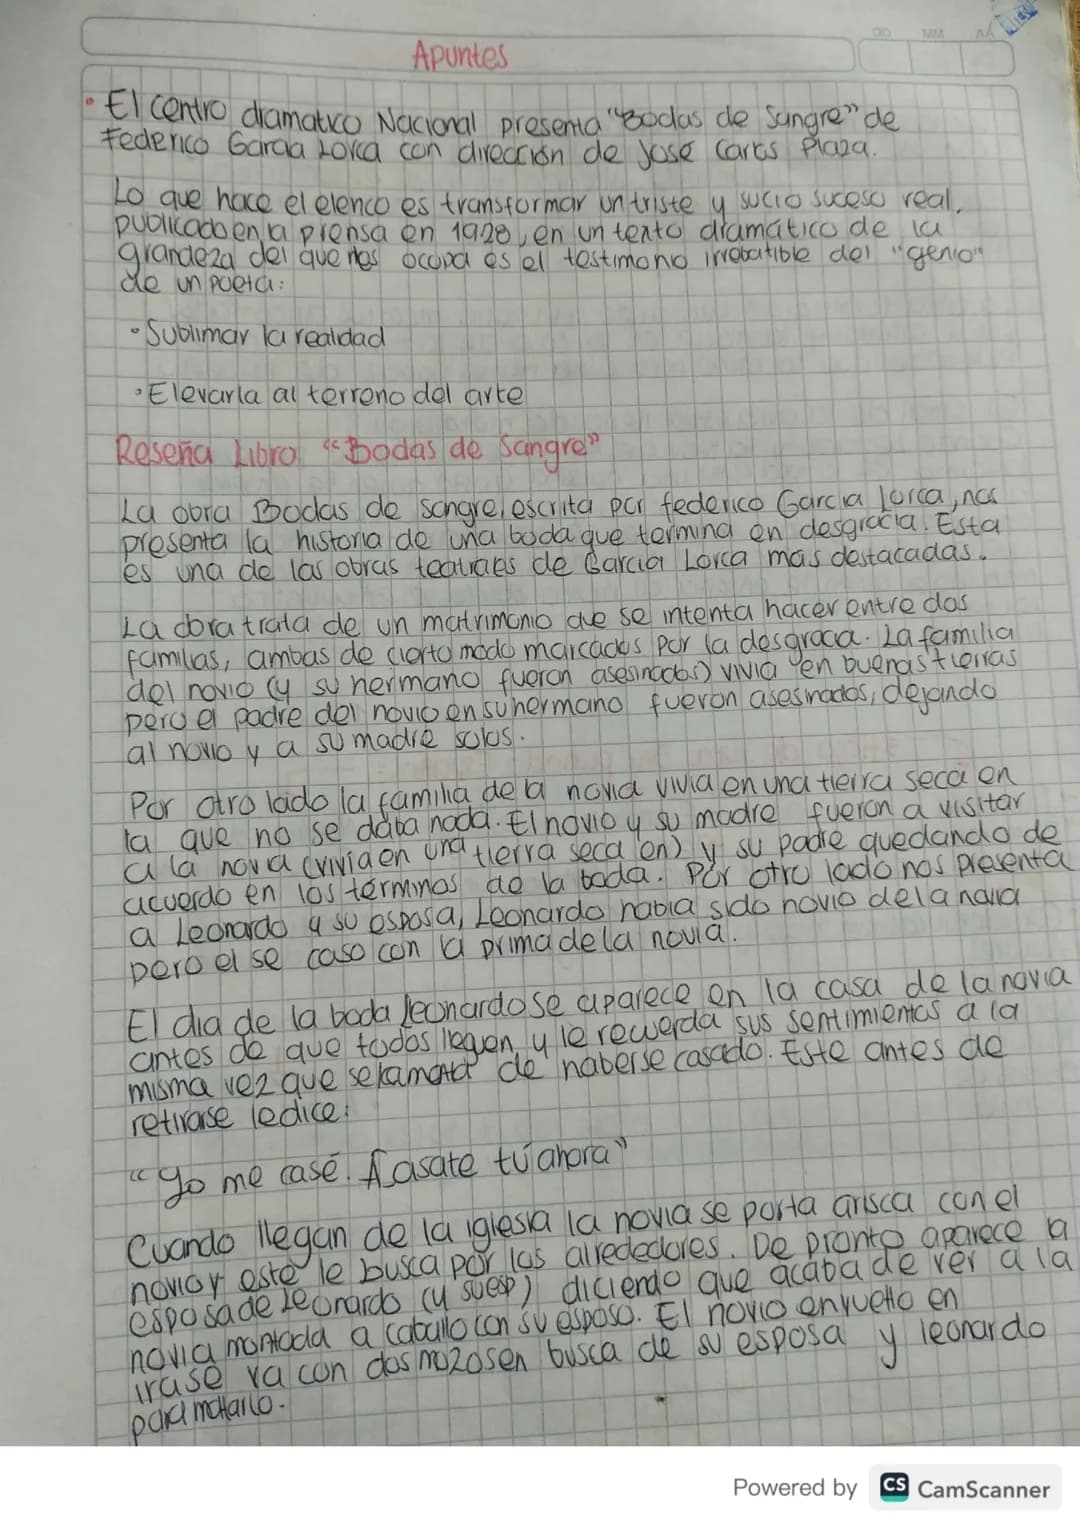 DD MM AA
Apuntes
• El centro dramatico Nacional presenta "Bodas de Sangre" de
Federico Garcia Lorca con dirección de Jose Carlos Plaza.
Lo que hace el elenco es transformar un triste y sucio suceso real,
publicado en la prensa en 1928, en un texto dramático de la
grandeza del que nos ocupa es el testimono irrebatible del "genio"
de un poeta:
• Sublimar la realidad
• Elevarla al terreno del arte
Reseña Libro "Bodas de Sangre"
La obra Bodas de sangre, escrita por federico Garcia lorca, nos
presenta la historia de una boda que termina en desgracia. Esta
es una de las obras teatraes de Garcia Lorca mas destacadas.
La obra trata de un matrimonio que se intenta hacer entre dos
familias, ambas de cierto modo marcados por la desgracia. La familia
del novio (y su hermano fueron asesinados) vivia en buenas tierras
pero el padre del novio en su hermano fueron asesinados, dejando
al novio y a su madre solos.
Por otro lado la familia de la novia vivia en una tierra seca en
la que no se daba nada. El novio y su madre fueron a visitar
a la novia (vivia en una tierra seca en) y su padre quedando de
acuerdo en los términos de la boda. Por otro lado nos presenta
a Leonardo y su esposa, Leonardo habia sido novio de la novia
pero el se caso con la prima de la novia.
El dia de la boda leonardo se aparece en la casa de la novia
antes de que todos llegen y le recuerda sus sentimientos a la
misma vez que se lamenta de haberse casado. Este antes de
retirarse le dice:
"Yo me casé. Casate tú ahora"
Cuando llegan de la iglesia la novia se porta arisca con el
novio y este le busca por los alrededores. De pronto aparece la
esposa de leonardo (y su esp) diciendo que acaba de ver a la
novia montada a caballo con su esposo. El novio envuelto en
ira se va con dos mozos en busca de su esposa y leonardo
para matarlo.
Powered by CS CamScanner